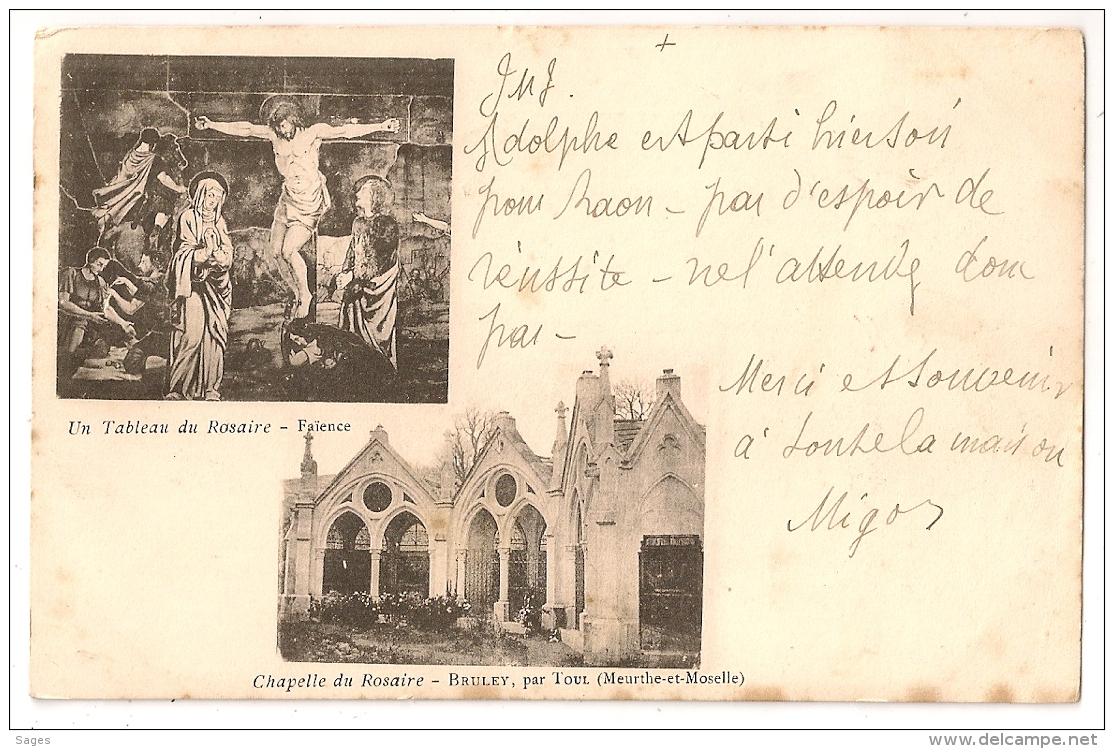 +
JMJ.
Adolphe est parti hier soir
pour Raon – pas d'espoir de
réussite – ne l'attendez donc
pas –
Merci et souvenir
à toute la maison
Migos
Un Tableau du Rosaire – Faïence
Chapelle du Rosaire – BRULEY, par TOUL (Meurthe-et-Moselle)
Sages
www.delcampe.net